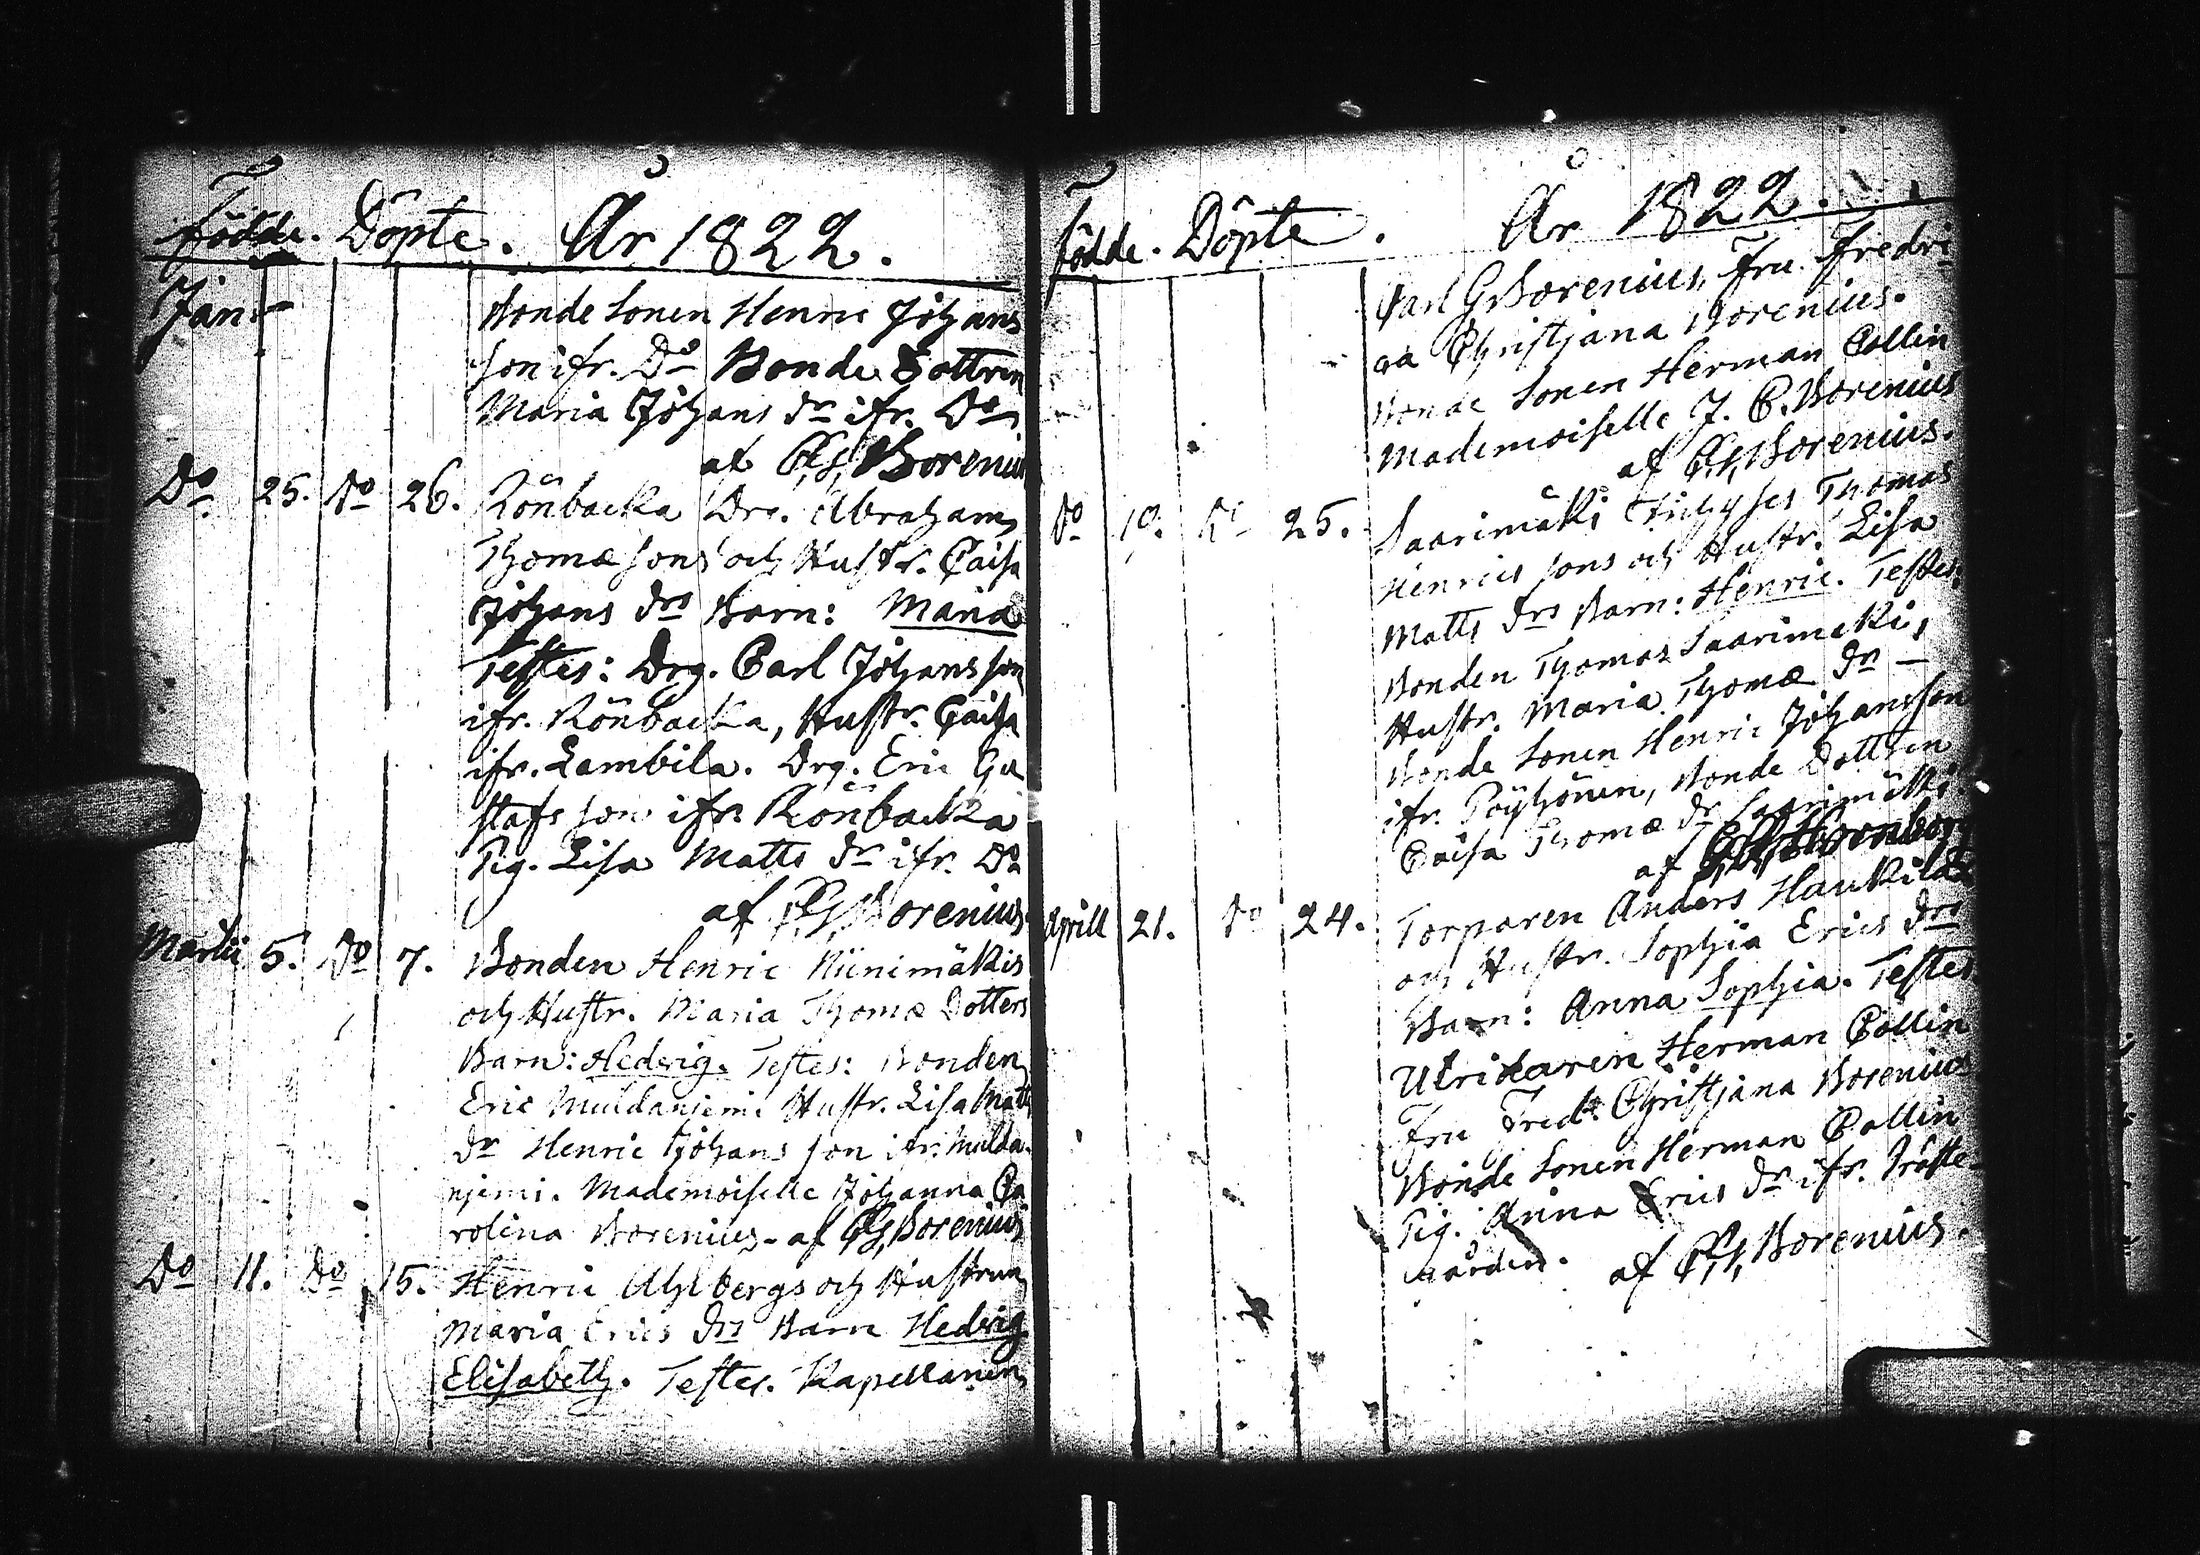 Födde. Döpte. År 1822.
Janr
Bonde Sonen Henric Johans
son ifr. Do Bonde Dottren
Maria Johans dr ifr. Do
af C.G. Borenius
Do 25. Do 26. Rönbacka Drg. Abraham
Thomæ sons och Hustr. Caisa
Johans drs Barn: Maria
Testes: Drg. Carl Johansson
ifr. Rönbacka, Hustr. Caisa
ifr. Lambila. Drg. Eric Gu
stafs son ifr. Rönbacka
Pig. Lisa Matts dr ifr. Do
af C.G. Borenius
Martii 5. Do 7. Bonden Henric Niinimäkis
och Hustr. Maria Thomæ Dotters
Barn: Hedvig. Testes: Bonden
Eric Muldaniemi Hustr. Lisa Matts
dr Henric Johans son ifr. Mulda
njemi. Mademoiselle Johanna Ca
rolina Borenius - af C.G. Borenius
Do 11. Do 15. Henric Ahlbergs och Hustrun
Maria Erics drs Barn Hedvig
Elisabeth. Testes. Kapellanen
Födde. Döpte. År 1822.
Carl G. Borenius, Fru Fredri
ca Christjana Borenius.
Bonde Sonen Herman Collin
Mademoiselle J. C. Borenius
af C.G. Borenius.
Do 19. Do 25. Saarimäki Thomas
Henrics sons och Hustr. Lisa
Matts drs Barn: Henric. Testes
Bonden Thomas Saarimäki,
Hustr. Maria Thomæ dr —
Bonde Sonen Henric Johansson
ifr. Pöyhönen, Bonde Dottren
Caisa Thomæ dr Saarimäki
af
Aprill 21. Do 24. Torparen Anders Haukilas
och Hustr. Sophia Erics drs
Barn: Anna Sophia. Testes
Utridaren Herman Collin
Fru Fred. Christjana Borenius
Bonde Sonen Herman Collin
Pig. Anna Erics dr ifr. Präste
gården. af C.G. Borenius.